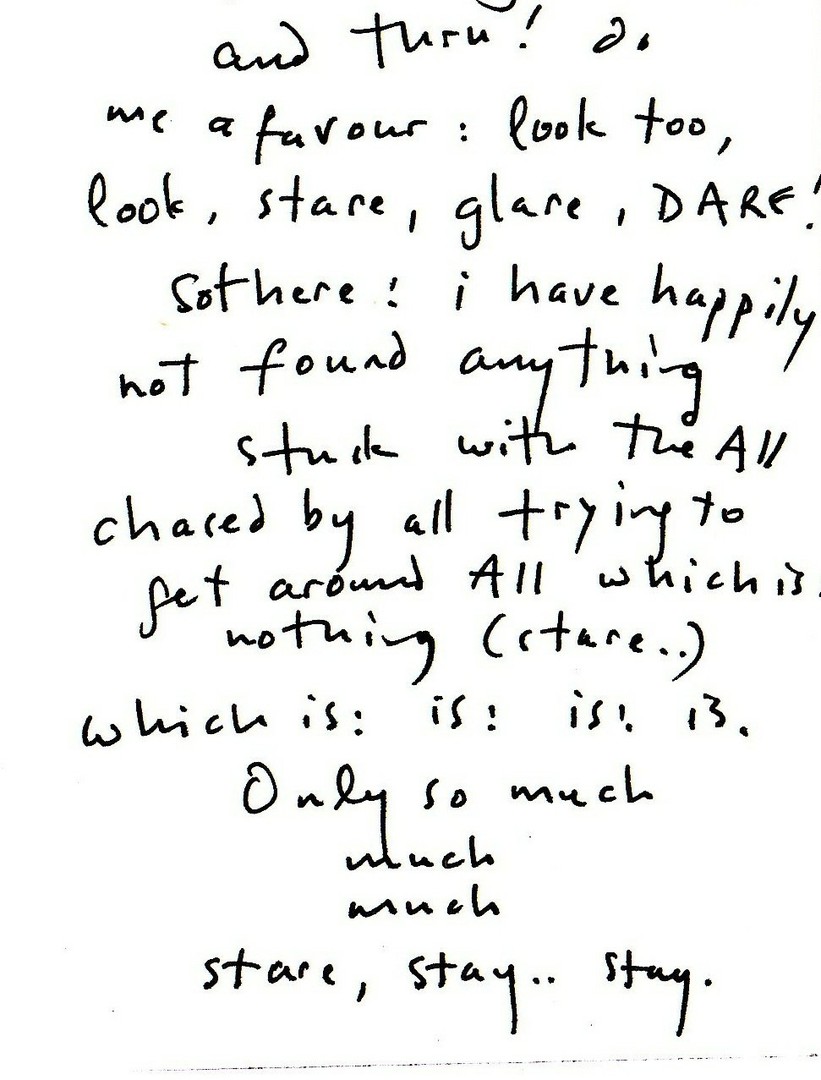 and turn! do
me a favour: look too,
look, stare, glare, DARE!
Sothere! i have happily
not found anything
stuck with the All
chased by all trying to
get around All which is
nothing (stare..)
which is: is! is! is.
Only so much
much
much
stare, stay.. stay.